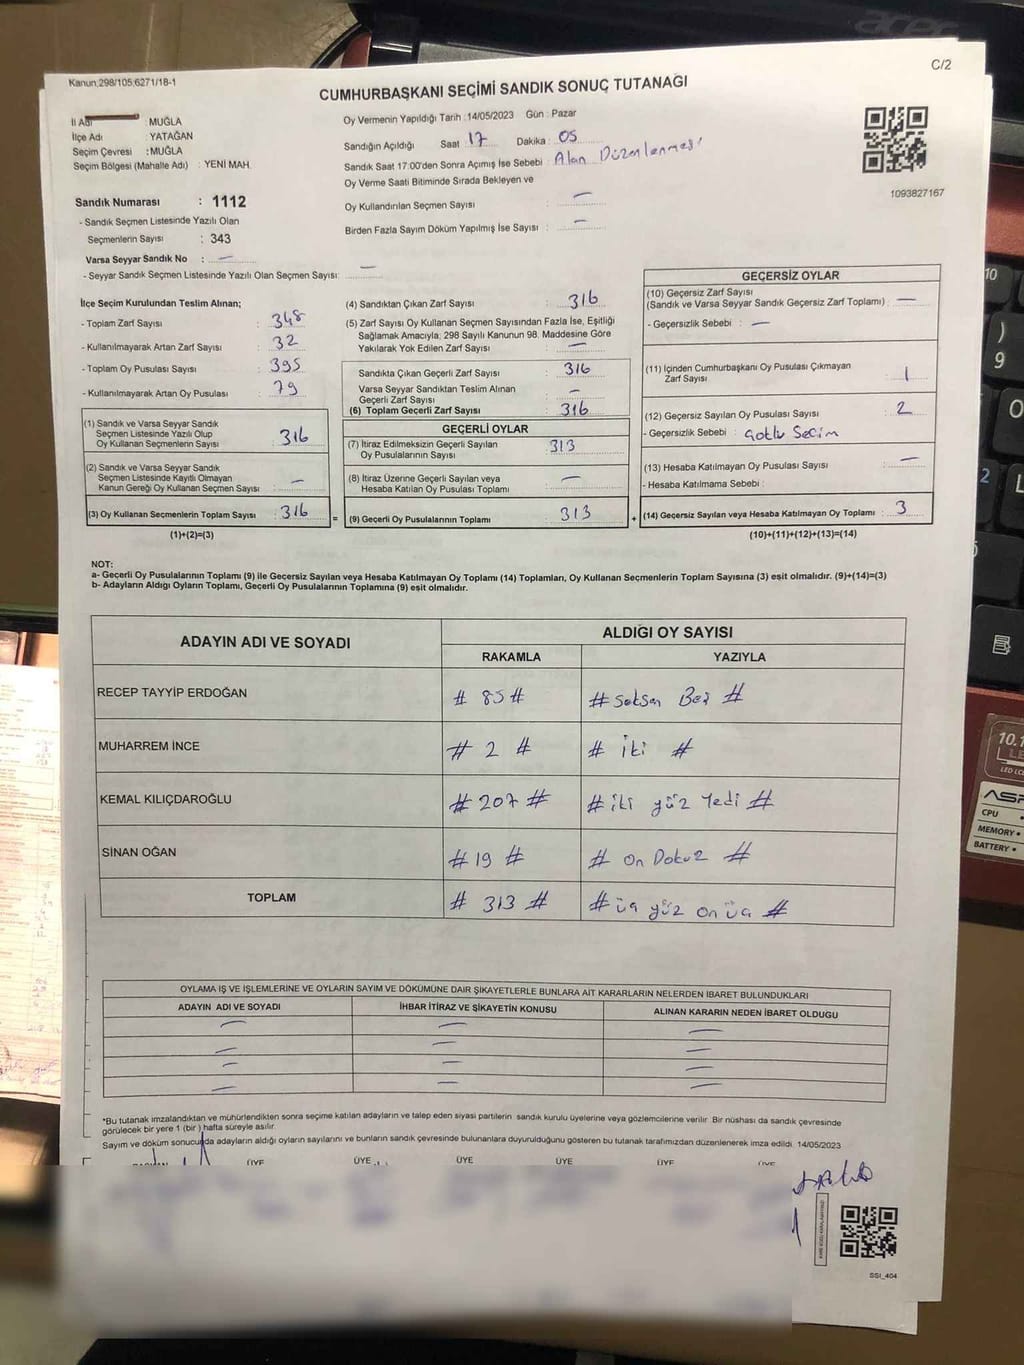 acer
C/2
Kanun:298/105;6271/18-1
CUMHURBAŞKANI SEÇİMİ SANDIK SONUÇ TUTANAĞI
İl Adı : MUĞLA
İlçe Adı : YATAĞAN
Seçim Çevresi : MUĞLA
Seçim Bölgesi (Mahalle Adı) : YENİ MAH.
Oy Vermenin Yapıldığı Tarih :14/05/2023 Gün : Pazar
Sandığın Açıldığı Saat : 17 Dakika : 05
Sandık Saat 17:00'den Sonra Açımış İse Sebebi : Alan Düzenlenmesi
Oy Verme Saati Bitiminde Sırada Bekleyen ve
Oy Kullandırılan Seçmen Sayısı : —
Birden Fazla Sayım Döküm Yapılmış İse Sayısı : —
1093827167
Sandık Numarası : 1112
- Sandık Seçmen Listesinde Yazılı Olan
Seçmenlerin Sayısı : 343
Varsa Seyyar Sandık No : —
- Seyyar Sandık Seçmen Listesinde Yazılı Olan Seçmen Sayısı: —
İlçe Seçim Kurulundan Teslim Alınan;
- Toplam Zarf Sayısı : 348
- Kullanılmayarak Artan Zarf Sayısı : 32
- Toplam Oy Pusulası Sayısı : 395
- Kullanılmayarak Artan Oy Pusulası : 79
(1) Sandık ve Varsa Seyyar Sandık
Seçmen Listesinde Yazılı Olup
Oy Kullanan Seçmenlerin Sayısı : 316
(2) Sandık ve Varsa Seyyar Sandık
Seçmen Listesinde Kayıtlı Olmayan
Kanun Gereği Oy Kullanan Seçmen Sayısı : —
(3) Oy Kullanan Seçmenlerin Toplam Sayısı : 316
(1)+(2)=(3)
(4) Sandıktan Çıkan Zarf Sayısı : 316
(5) Zarf Sayısı Oy Kullanan Seçmen Sayısından Fazla İse, Eşitliği
Sağlamak Amacıyla, 298 Sayılı Kanunun 98. Maddesine Göre
Yakılarak Yok Edilen Zarf Sayısı : —
Sandıkta Çıkan Geçerli Zarf Sayısı : 316
Varsa Seyyar Sandıktan Teslim Alınan
Geçerli Zarf Sayısı : —
(6) Toplam Geçerli Zarf Sayısı : 316
GEÇERLİ OYLAR
(7) İtiraz Edilmeksizin Geçerli Sayılan
Oy Pusulalarının Sayısı : 313
(8) İtiraz Üzerine Geçerli Sayılan veya
Hesaba Katılan Oy Pusulası Toplamı : —
= (9) Geçerli Oy Pusulalarının Toplamı : 313
GEÇERSİZ OYLAR
(10) Geçersiz Zarf Sayısı
(Sandık ve Varsa Seyyar Sandık Geçersiz Zarf Toplamı) : —
- Geçersizlik Sebebi : —
(11) İçinden Cumhurbaşkanı Oy Pusulası Çıkmayan
Zarf Sayısı : 1
(12) Geçersiz Sayılan Oy Pusulası Sayısı : 2
- Geçersizlik Sebebi : Çoklu Seçim
(13) Hesaba Katılmayan Oy Pusulası Sayısı : —
- Hesaba Katılmama Sebebi :
+ (14) Geçersiz Sayılan veya Hesaba Katılmayan Oy Toplamı : 3
(10)+(11)+(12)+(13)=(14)
NOT:
a- Geçerli Oy Pusulalarının Toplamı (9) ile Geçersiz Sayılan veya Hesaba Katılmayan Oy Toplamı (14) Toplamları, Oy Kullanan Seçmenlerin Toplam Sayısına (3) eşit olmalıdır. (9)+(14)=(3)
b- Adayların Aldığı Oyların Toplamı, Geçerli Oy Pusulalarının Toplamına (9) eşit olmalıdır.
ADAYIN ADI VE SOYADI ALDIĞI OY SAYISI
RAKAMLA YAZIYLA
RECEP TAYYİP ERDOĞAN # 85 # # Seksen Beş #
MUHARREM İNCE # 2 # # iki #
KEMAL KILIÇDAROĞLU # 207 # # iki yüz Yedi #
SİNAN OĞAN # 19 # # On Dokuz #
TOPLAM # 313 # # üç yüz on üç #
OYLAMA İŞ VE İŞLEMLERİNE VE OYLARIN SAYIM VE DÖKÜMÜNE DAİR ŞİKAYETLERLE BUNLARA AİT KARARLARIN NELERDEN İBARET BULUNDUKLARI
ADAYIN ADI VE SOYADI İHBAR İTİRAZ VE ŞİKAYETİN KONUSU ALINAN KARARIN NEDEN İBARET OLDUGU
— — —
— — —
— — —
— — —
*Bu tutanak imzalandıktan ve mühürlendikten sonra seçime katılan adayların ve talep eden siyasi partilerin sandık kurulu üyelerine veya gözlemcilerine verilir. Bir nüshası da sandık çevresinde
görülecek bir yere 1 (bir) hafta süreyle asılır.
Sayım ve döküm sonucunda adayların aldığı oyların sayılarını ve bunların sandık çevresinde bulunanlara duyurulduğunu gösteren bu tutanak tarafımızdan düzenlenerek imza edildi. 14/05/2023
ÜYE ÜYE ÜYE ÜYE ÜYE ÜYE
SSI_404
10.1
LED LCD
CPU
MEMORY
BATTERY